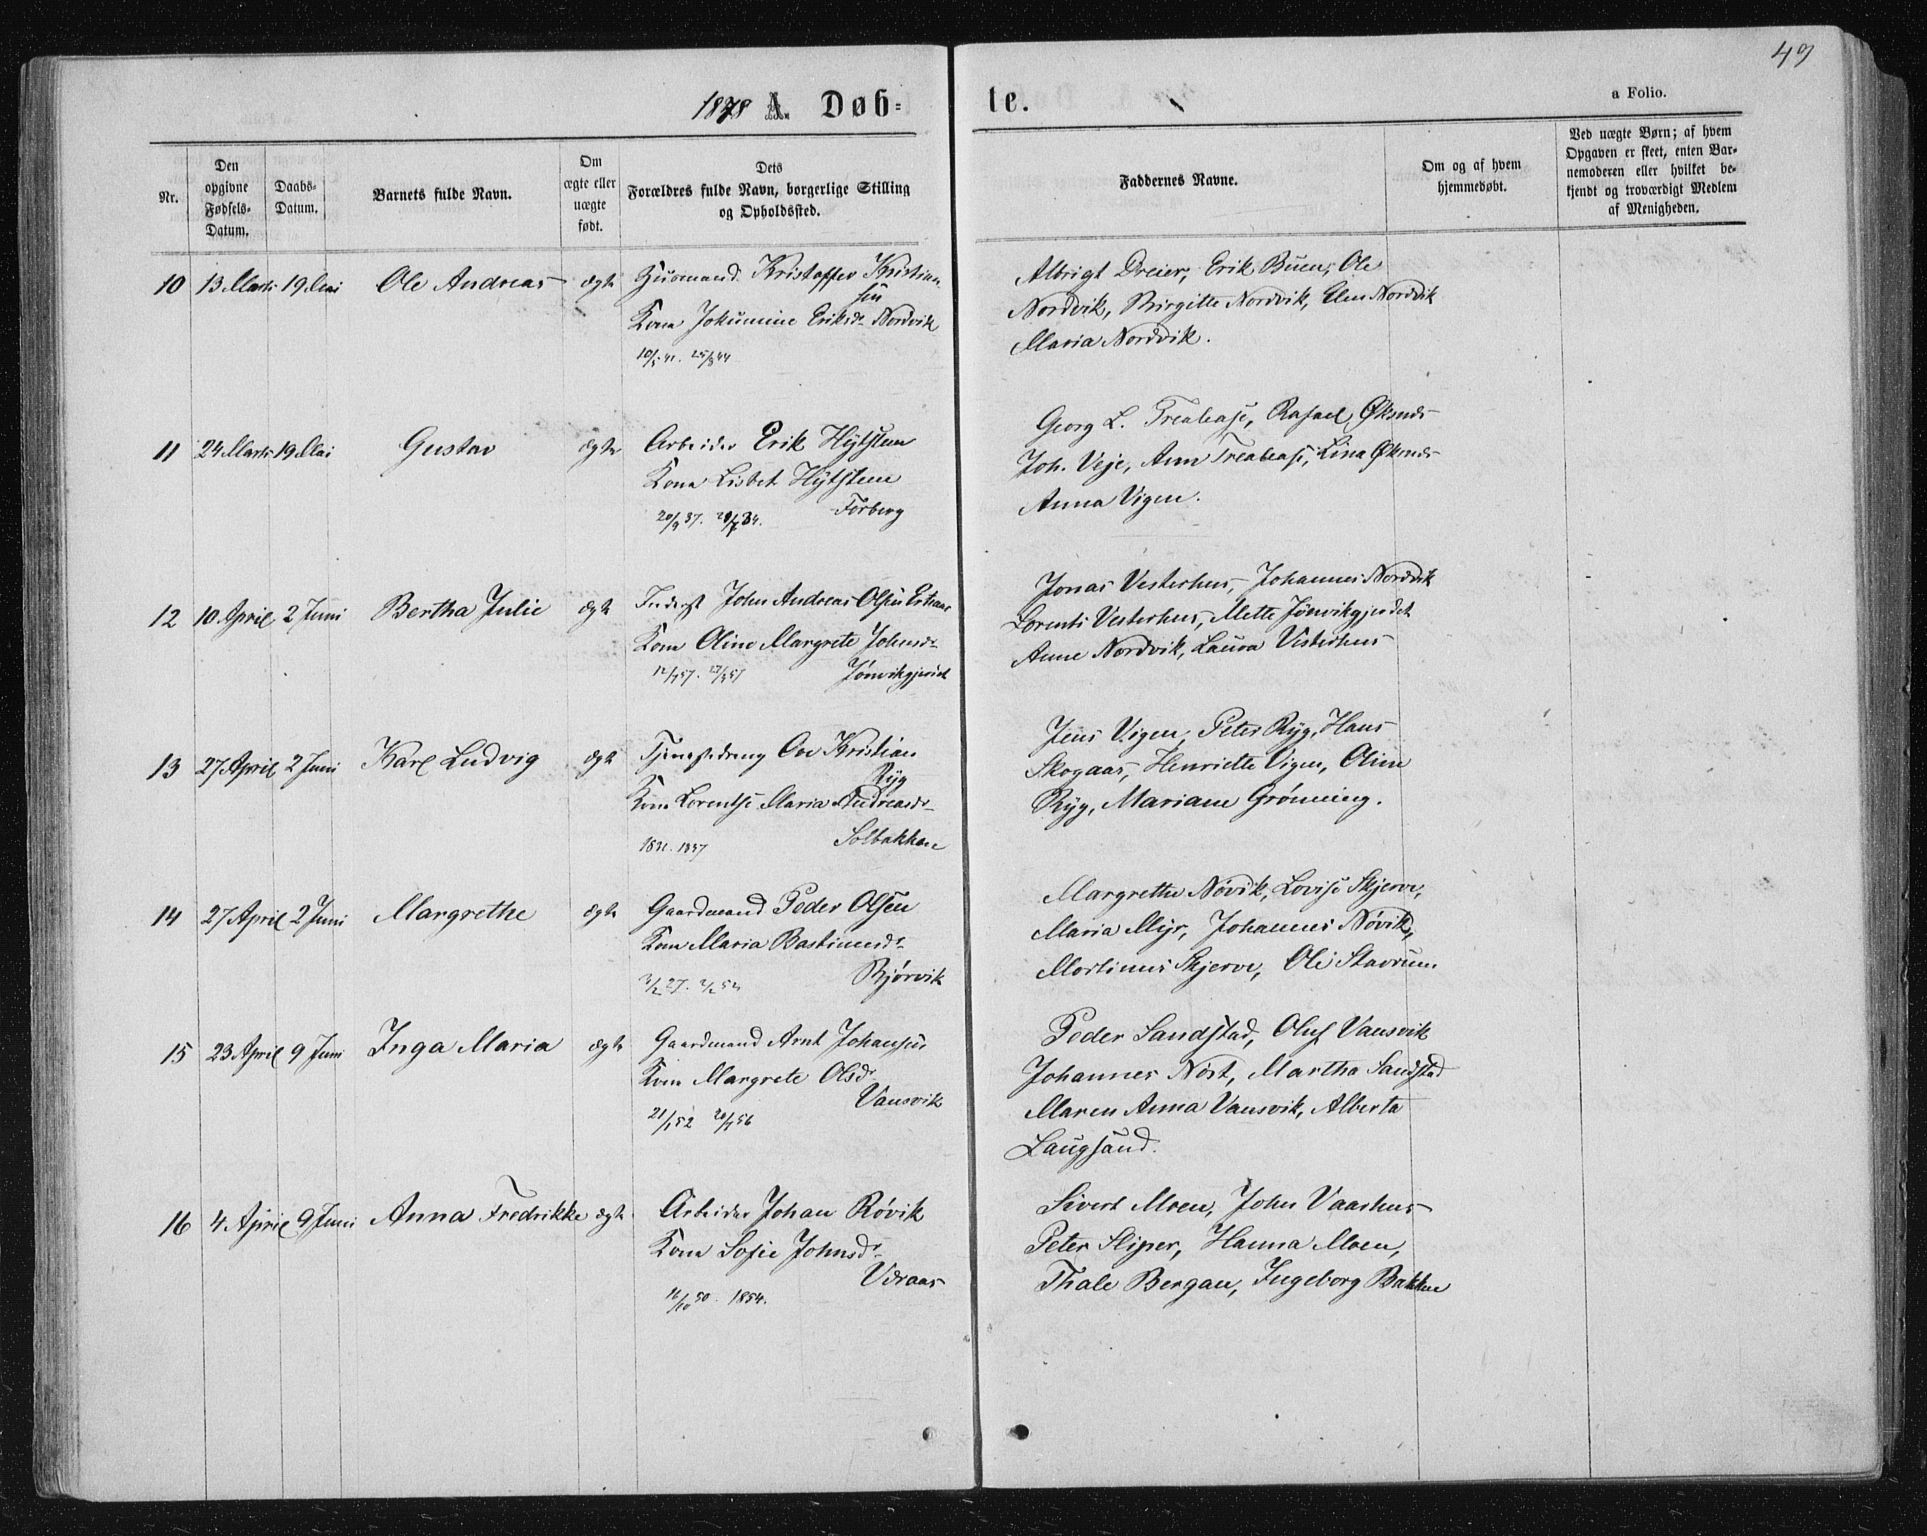 49
1878 A. Døb=te.
a Folio.
Nr.
Den opgivne Fødsels-Datum.
Daabs-Datum.
Barnets fulde Navn.
Om ægte eller uægte født.
Dets Forældres fulde Navn, borgerlige Stilling og Opholdssted.
Faddernes Navne.
Om og af hvem hjemmedøbt.
Ved uægte Børn; af hvem Opgaven er skeet, enten Barnemoderen eller hvilket bekjendt og troværdigt Medlem af Menigheden.
10 13 Marts 19 Mai Ole Andreas ægte Husmand Kristoffer Kristian
sen
Kona Eriksd. Nordvik
10/5 41. 25/8 44
Albrigt Dreier, Erik Buen, Ole
Nordvik, Birgitte Nordvik, Elen Nordvik
Maria Nordvik.
11 24 Marts 19 Mai Gustav ægte Arbeider Erik Hytsten
Kona Lisbet Hytsten
Forberg
20/9 37.
Georg L. Trealease, Rafael Øksnes
Joh. Veje, Ann Trealease, Lina Øksnes
Anna Vigen.
12 10 April 2 Juni Bertha Julie ægte Inderst John Andreas Olsen
Kona Oline Margrete Johnsd.
Jønvikgjerdet
Jonas Vesterhus, Johannes Nordvik
Lorents Vesterhus, Mette Jønvikgjerdet
Anne Nordvik, Laura Vesterhus
13 27 April 2 Juni Karl Ludvig ægte Tjenestedreng Ove Kristian
Ryg
Kona Lorentse Maria Andreasd.
Solbakken
Jens Vigen, Peter Ryg, Hans
Skogaas, Henriette Vigen, Oline
Ryg, Mariane Grønning.
14 27 April 2 Juni Margrethe ægte Gaardmand Peder Olsen
Kona Maria Bastiansd.
Bjørvik
Margrethe Nøvik, Lovise Skjerve,
Maria Myr, Johannes Nøvik,
Martinus Skjerve, Ole Stavrum.
15 23 April 9 Juni Inga Maria ægte Gaardmand Arnt Johansen
Kona Margrete Olsd.
Vansvik
21/1 52 20/7 56
Peder Sandstad, Oluf Vansvik
Johannes Nøst, Martha Sandstad
Maren Anna Vansvik, Alberta
Laugsand.
16 4 April 9 Juni Anna Fredrikke ægte Arbeider Johan Røvik
Kona Sofie Johnsd.
Udraas
16/10 50. 1854.
Sivert Moen, John Vaarhus
Peter Sliper, Hanna Moen,
Thale Bergan, Ingeborg Bakken